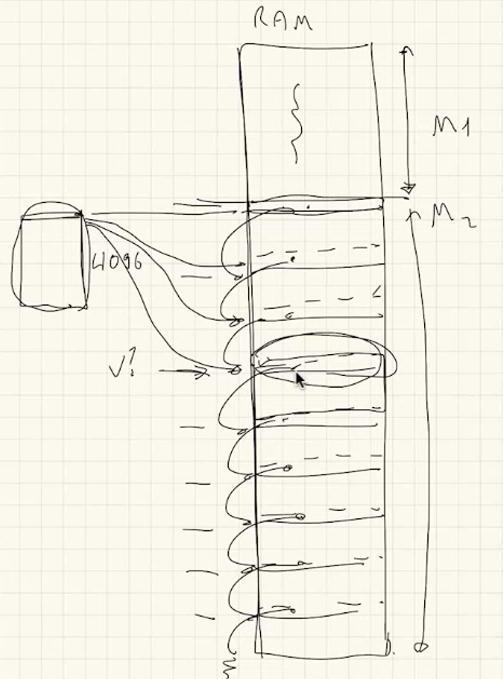 RAM
M1
M2
4096
V?